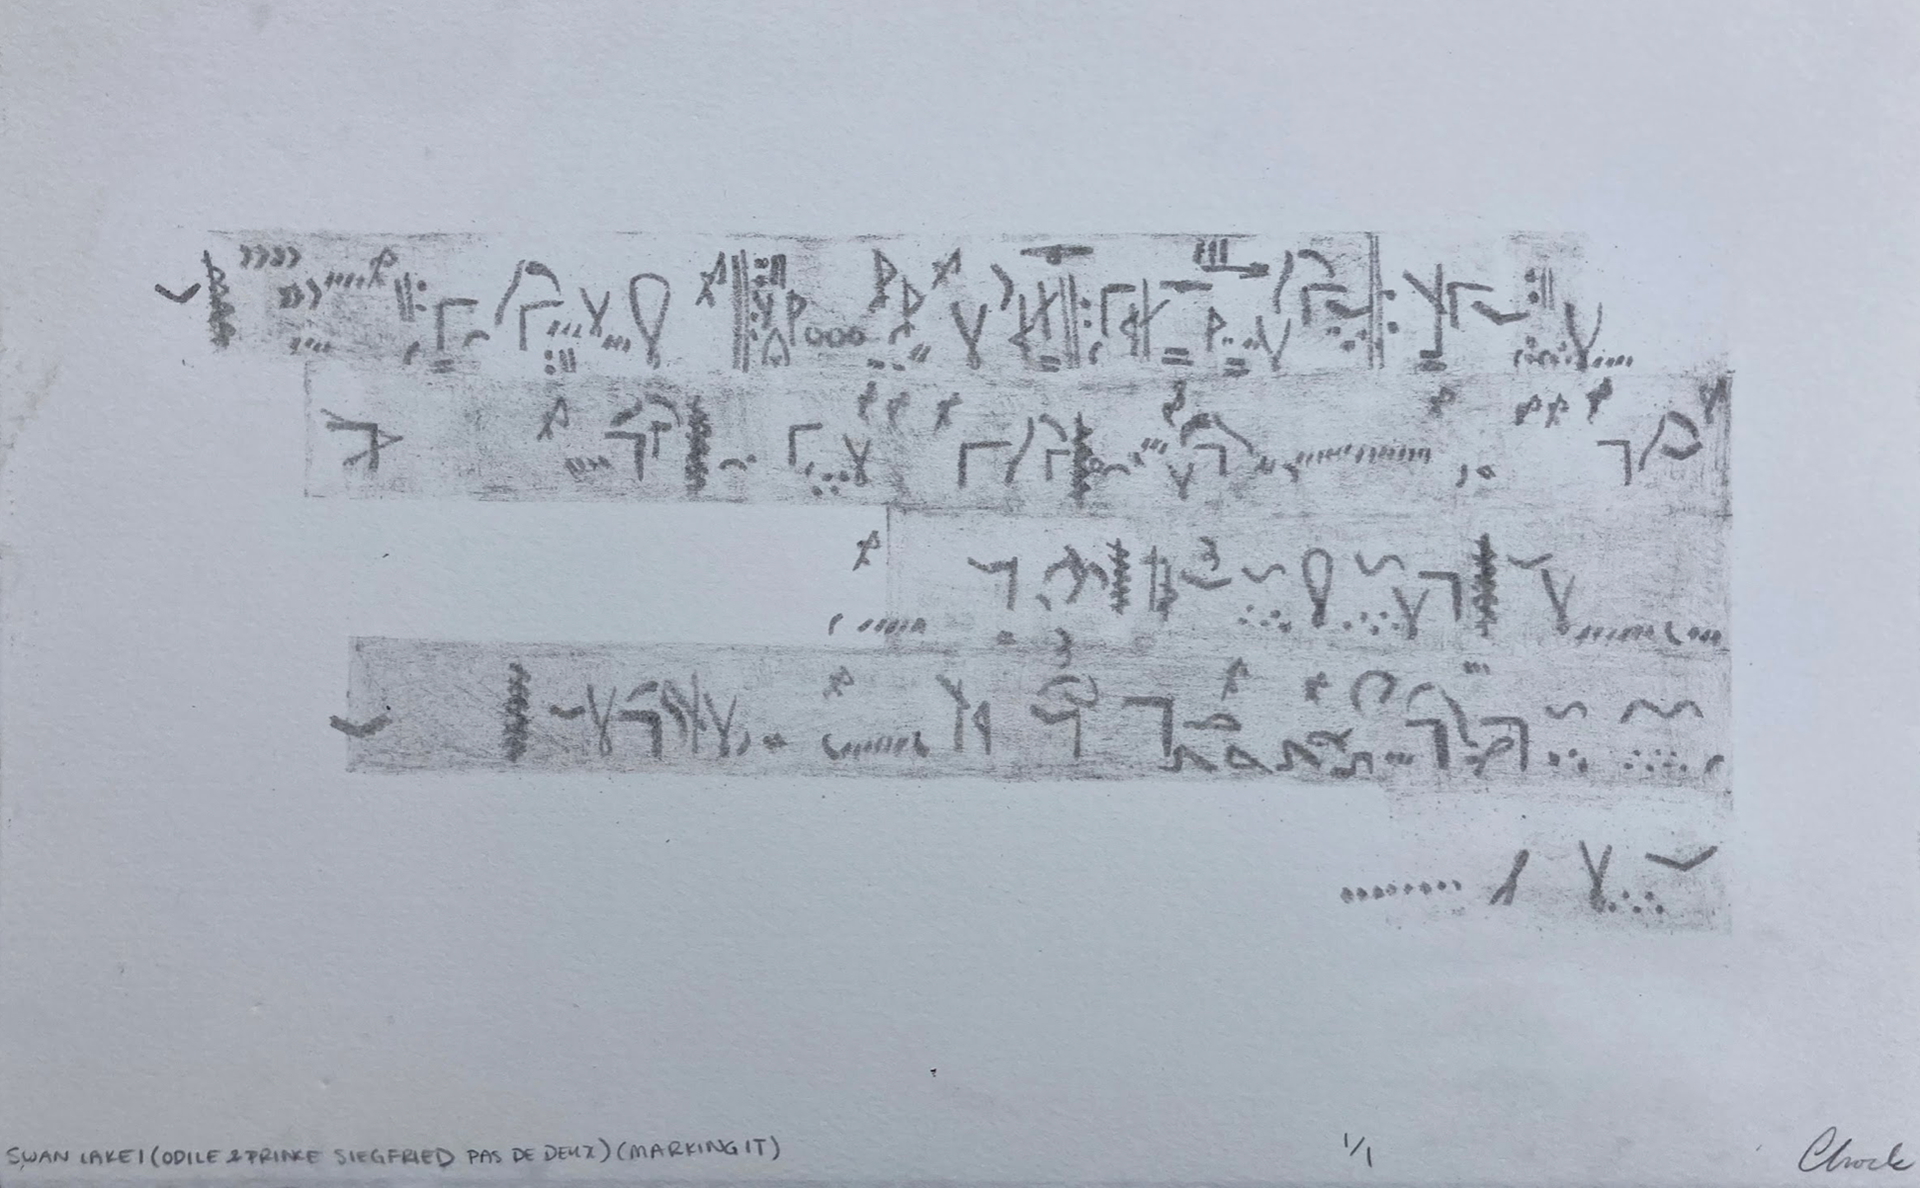 SWAN LAKE I (ODILE & PRINCE SIEGFRIED PAS DE DEUX) (MARKING IT) 1/1